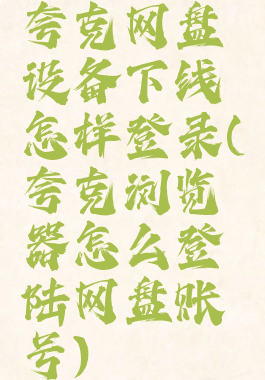 夸克网盘
设备下线
怎样登录(
夸克浏览
器怎么登
陆网盘账
号)